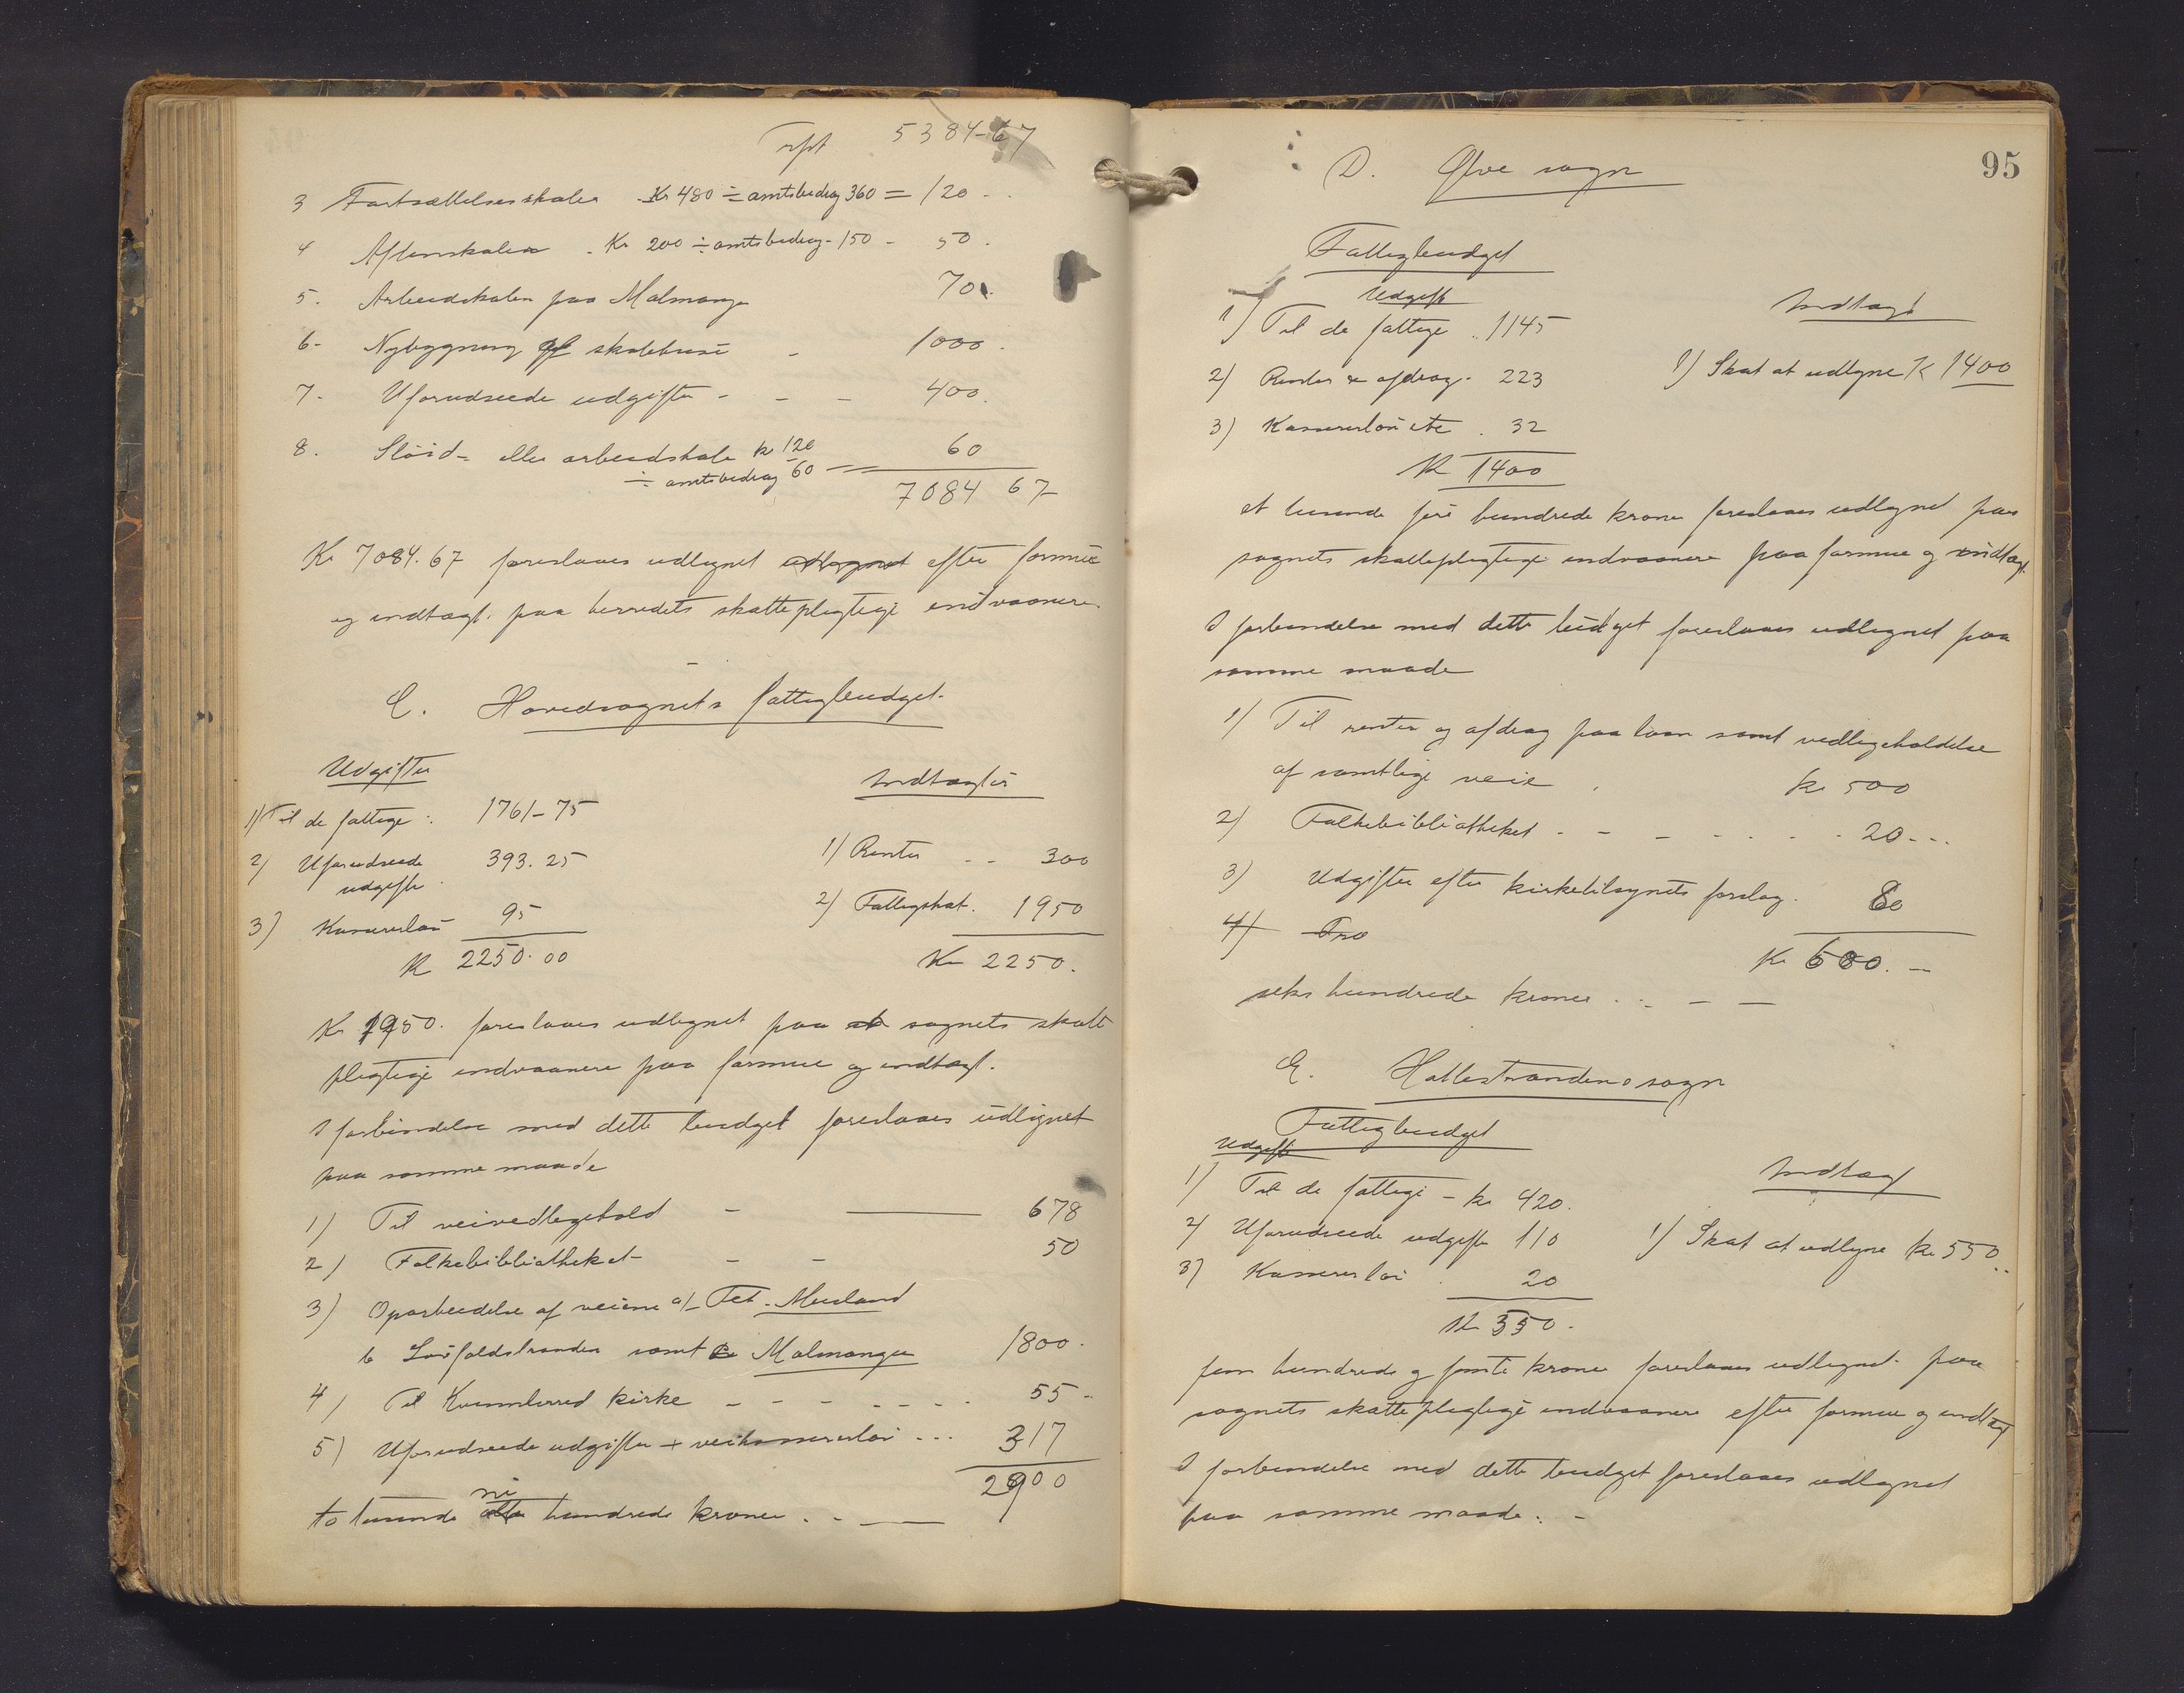 Trpt 5384-67
3 Fortsættelsesskoler Kr 480 ÷ amtsbidrag 360 = 120 -
4 Aftenskoler . Kr 200 ÷ amtsbidrag - 150 - 50 .
5. Arbeidskolen paa Malmanger 70.
6- Nybygning af skolehuse - 1000 .
7- Uforudseede udgifter - - - 400.
8. Sløid- eller arbeidskole kr 120
÷ amtsbidrag 60 = 60
7084 67
Kr 7084.67 foreslaaes udlignet udlignet efter formue
og indtægt paa herredets skattepligtige indvaanere.
C. Hovedsognets fattigbudget.
Udgifter Indtægter
1) Til de fattige : 1761-75
2) Uforudseede udgifter 393.25 1) Renter - - 300
3) Kassererløn 95 2) Fattigskat. 1950
Kr 2250.00 Kr 2250.
Kr 1950. foreslaaes udlignet paa sognets skatte
pligtige indvaanere paa formue og indtægt.
I forbindelse med dette budget foreslaaes udlignet
paa samme maade
1) Til veivedligehold - 678
2) Folkebibliotheket - - 50
3) Oparbeidelse af veiene a/ Tet - Musland
b Løfaldstranden samt Malmanger 1800 .
4) Til Kvinnherred kirke - - - - - - 55 -
5) Uforudseede udgifter + veikassererløn ... 317
2900
to tusinde otte ni hundrede kroner . -
95
D. Ølve sogn
Fattigbudget
Udgift Indtægt
1) Til de fattige .. 1145
2) Renter & afdrag - 223 1) Skat at udligne K 1400
3) Kassererløn etc . 32
Kr 1400
et tusinde fire hundrede kroner foreslaaes udlignet paa
sognets skattepligtige indvaanere paa formue og indtægt.
I forbindelse med dette budget foreslaaes udlignet paa
samme maade
1) Til renter og afdrag paa laan samt vedligeholdelse
af samtlige veie . kr 500
2) Folkebibliotheket - - - - - - - 20 - -
3) Udgifter efter kirketilsynets forslag . 80
4) Fra
Kr 600. -
seks hundrede kroner . . - -
E. Hatlestrandens sogn
Fattigbudget
Udgift Indtægt
1) Til de fattige - kr 420.
2) Uforudseede udgifter 110 1) Skat at udligne kr 550 ..
3) Kassererløn . 20
Kr 550.
fem hundrede og femti kroner foreslaaes udlignet paa
sognets skattepligtige indvaanere efter formue og indtægt
I forbindelse med dette budget foreslaaes udlignet
paa samme maade. -